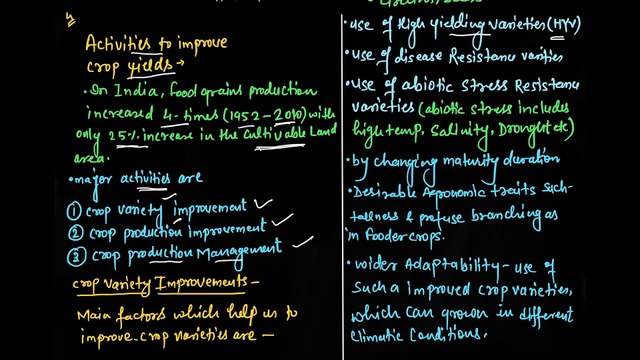 Activities to improve
crop yields →
• In India, food grains production
increased 4-times (1952-2010) with
only 25% increase in the Cultivable Land
area.
• major activities are
① crop variety improvement
② crop production improvement
③ crop production Management
crop variety Improvements -
Main factors which help us to
improve crop varieties are -
• use of High yielding varieties (HYV)
• use of disease Resistance varities
• use of abiotic Stress Resistance
varieties (abiotic stress includes
high temp, Salinity, Drought etc)
• by changing maturity duration
• Desirable Agronomic traits such-
tallness & profuse branching as
in Fooder crops.
• wider Adaptability - use of
Such a improved crop varieties,
which can grown in different
Climatic Conditions.